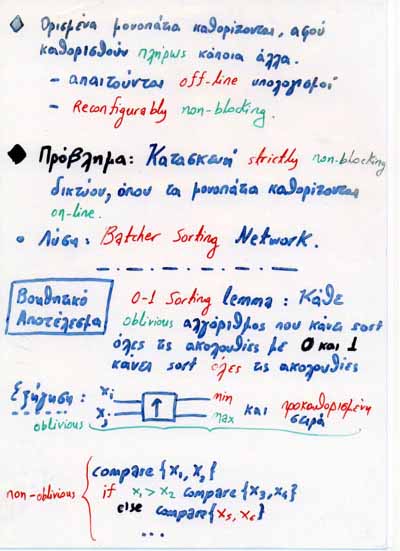 ◇ Ορισμένα μονοπάτια καθορίζονται, αφού
καθορισθούν πλήρως κάποια άλλα.
- απαιτούνται off-line υπολογισμοί
- Reconfigurably non-blocking.
◆ Πρόβλημα: Κατασκευή strictly non-blocking
δικτύου, όπου τα μονοπάτια καθορίζονται
on-line.
• Λύση: Batcher Sorting Network.
Βοηθητικό
Αποτέλεσμα
0-1 Sorting lemma: Κάθε
oblivious αλγόριθμος που κάνει sort
όλες τις ακολουθίες με 0 και 1
κάνει sort όλες τις ακολουθίες
Εξήγηση: xi ↑ min
xj max και προκαθορισμένη
σειρά
oblivious
compare {x1, x2}
non-oblivious if x1 > x2 compare {x3, x4}
else compare {x5, x6}
...